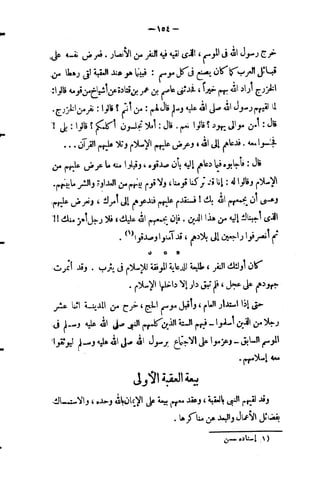 — ١٥٤ —
خرج رسول الله فى الموسم ، الذى لقيه فيه النفر من الأنصار . فعرض نفسه على
قبائل العرب كما كان يصنع فى كل موسم : فبينما هو عند العقبة لقى رهطا من
الخزرج أراد الله بهم خيراً ، فحدثنى عاصم بن عمر بن قتادة عن أشياخ من قومه قالوا :
لما لقيهم رسول الله صلى الله عليه وسلم قال لهم : من أنتم ؟ قالوا : نفر من الخزرج .
قال : أمن موالى يهود ؟ قالوا نعم . قال : أفلا تجلسون أكلمكم ؟ قالوا : بلى !
فجلسوا معه . فدعاهم إلى الله ، وعرض عليهم الإسلام وتلا عليهم القرآن ...
قال : فأجابوه فيما دعاهم إليه بأن صدقوه ، وقبلوا منه ما عرض عليهم من
الإسلام وقالوا له : إنا قد تركنا قومنا ، ولا قوم بينهم من العداوة والشر ما بينهم .
وعسى أن يجمعهم الله بك ! فسنقدم عليهم فندعوهم إلى أمرك ، ونعرض عليهم
الذى أجبناك إليه من هذا الدين . فإن يجمعهم الله عليك ، فلا رجل أعز منك !!
ثم انصرفوا راجعين إلى بلادهم ، قد آمنوا وصدقوا (١) .
* * *
كان أولئك النفر ، طليعة الدعاية الموفقة للإسلام فى يثرب . وقد أثمرت
جهودهم على عجل ، فلم تبق دار إلا داخلها الإسلام .
حتى إذا استدار العام ، وأقبل موسم الحج ، خرج من المدينة اثنا عشر
رجلا من الذين أسلموا ــ فيهم الستة الذين كلمهم النبى صلى الله عليه وسلم فى
الموسم السابق ــ وعزموا على الاجتماع برسول الله صلى الله عليه وسلم ليوثقوا
معه إسلامهم .
بيعة العقبة الأولى
وقد لقيهم النبى بالعقبة ، وعقد معهم بيعة على الإيمان بالله وحده ، والاستمساك
بفضائل الأعمال والبعد عن مناكرها .
(١) إسناده حسن